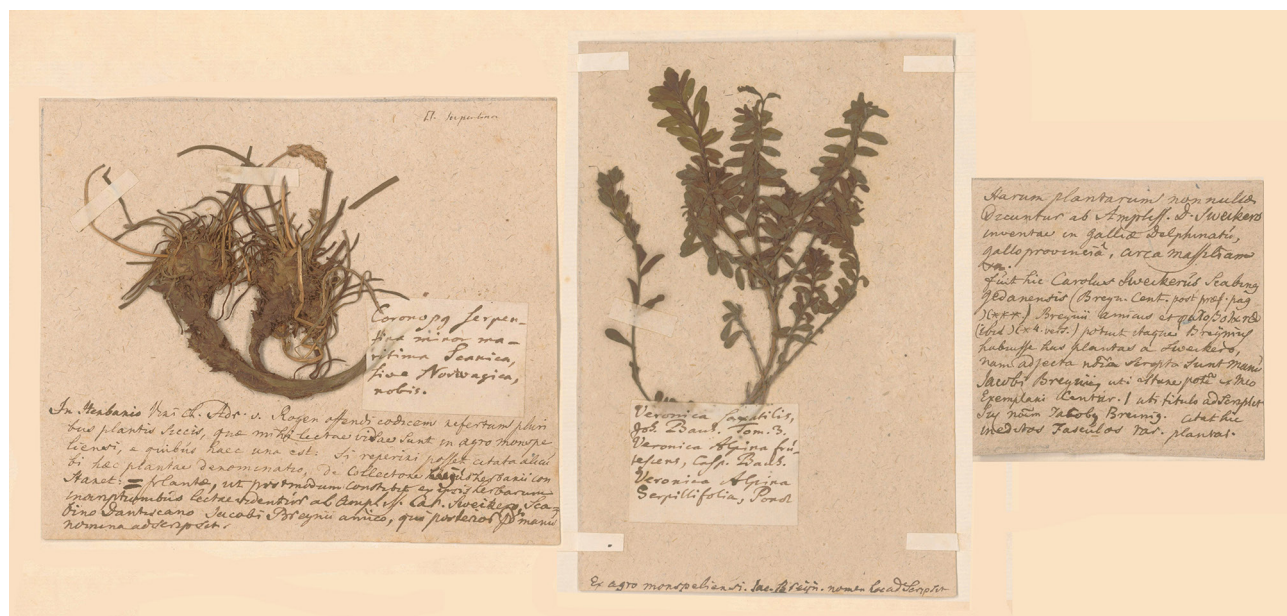 Pl. serpentina
Coronop9 serpen-
tina minor ma-
ritima Scanica,
sive Norwagica,
nobis.
In Herbario Ch. Adr. v. Rogen ofendi codicem refertum pluri
bus plantis siccis, quae mihi lectae videae sunt in agro monspe
liensi, e quibus haec una est. Si reperiri posset citata alicu
bi haec plantae denominatio, de Collectore herbarii con
staret: = plantae, ut postmodum constitit ex ipsis herbarum
inscriptionibus lectae videntur ab Ampliss. Car. Sweikero Sca
bino Dantiscano Jacobi Breynii amico, qui posterior manu
nomina adscripsit.
Veronica saxatilis,
Joh. Bauh. Tom. 3.
Veronica Alpina fru-
tescens, Casp. Bauh.
Veronica Alpina
Serpillifolia, Ponæ
Ex agro monspeliensi. Jac. Breijn. nomen adscripsit
Harum plantarum nonnullas
Dicuntur ab Ampliss. D. Sweikero
inventae in galliæ Delphinatu,
galloprovinciâ, circa massiliam
fuit hic Carolus Sweikerus Scabinq
gedanensis (Breyn. Cent. post præf. pag
)(***) Breynii amicus et
(ibid )(*4. vers.) potuit itaque Breynius
habuisse has plantas a Sweikero,
nam adjecta nōia scripta sunt manu
Jacobi Breynii, uti
Exemplari Centur. 1 uti titulo adscripsit
Sum Jacobj Breinij. citat hic
ineditos Fasculos rar. plantar.